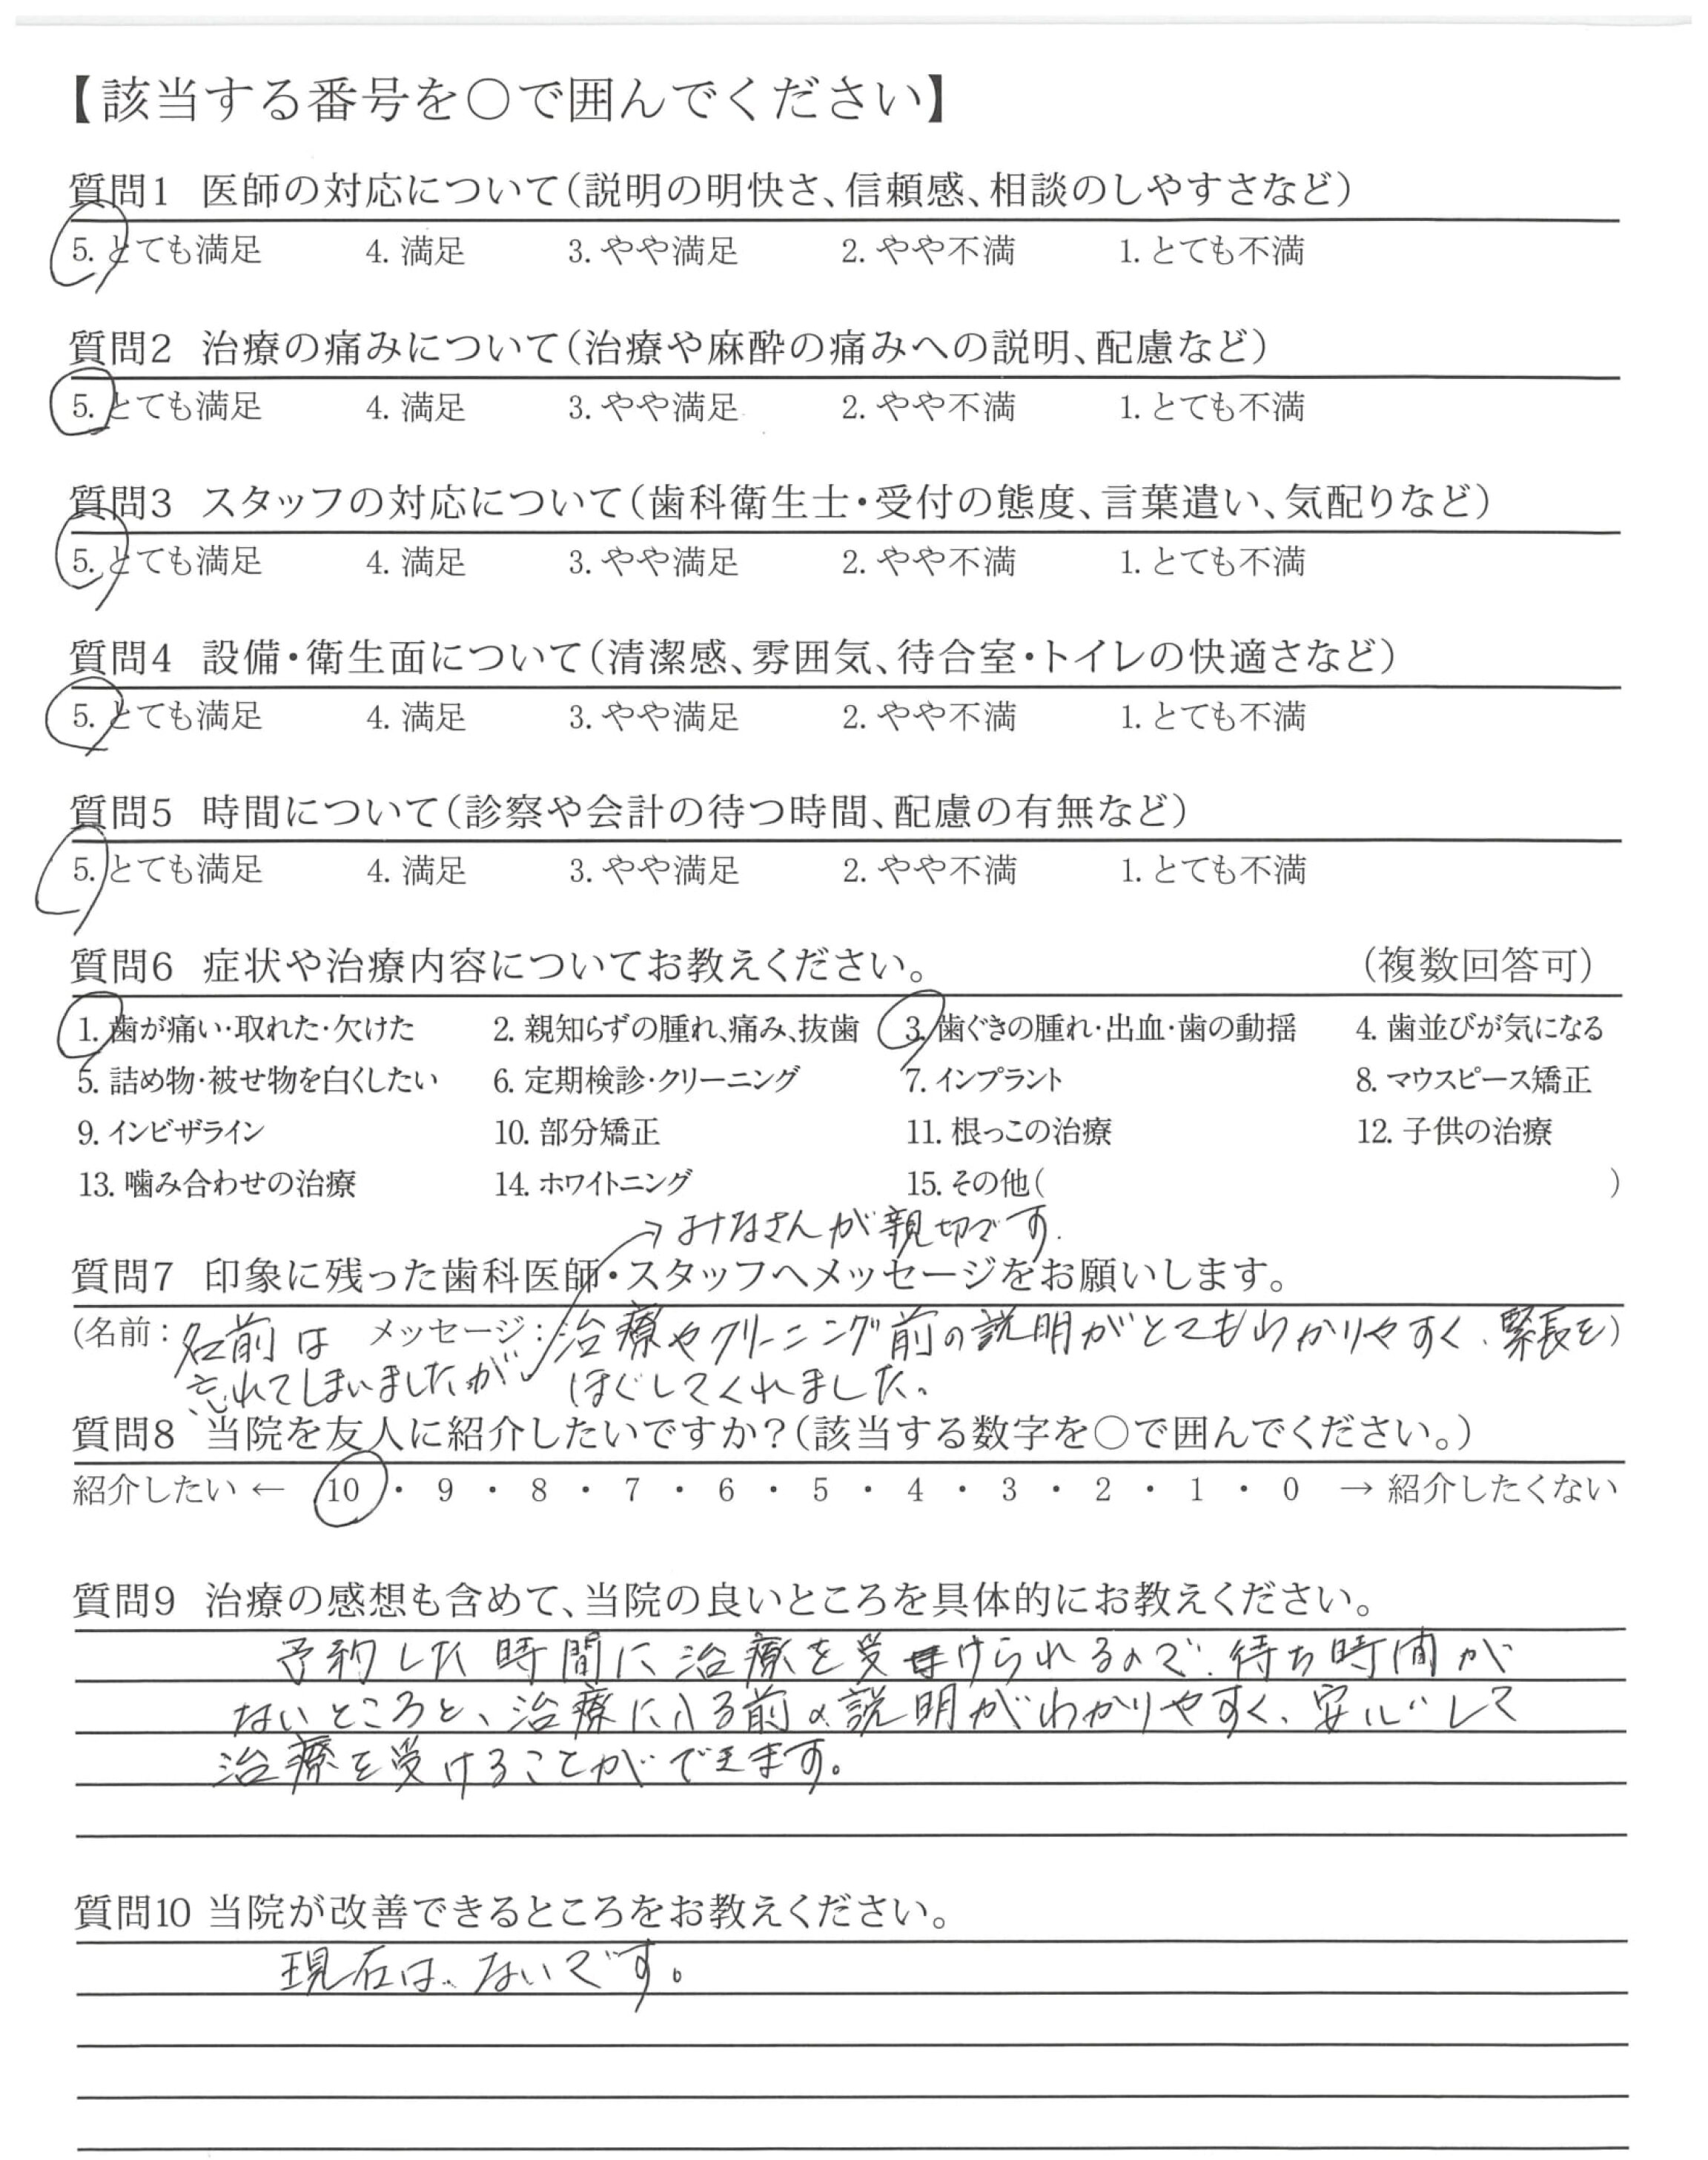 【該当する番号を○で囲んでください】
質問1 医師の対応について(説明の明快さ、信頼感、相談のしやすさなど)
5. とても満足 4. 満足 3. やや満足 2. やや不満 1. とても不満
質問2 治療の痛みについて(治療や麻酔の痛みへの説明、配慮など)
5. とても満足 4. 満足 3. やや満足 2. やや不満 1. とても不満
質問3 スタッフの対応について(歯科衛生士・受付の態度、言葉遣い、気配りなど)
5. とても満足 4. 満足 3. やや満足 2. やや不満 1. とても不満
質問4 設備・衛生面について(清潔感、雰囲気、待合室・トイレの快適さなど)
5. とても満足 4. 満足 3. やや満足 2. やや不満 1. とても不満
質問5 時間について(診察や会計の待つ時間、配慮の有無など)
5. とても満足 4. 満足 3. やや満足 2. やや不満 1. とても不満
質問6 症状や治療内容についてお教えください。 (複数回答可)
1. 歯が痛い・取れた・欠けた 2. 親知らずの腫れ、痛み、抜歯 3. 歯ぐきの腫れ・出血・歯の動揺 4. 歯並びが気になる
5. 詰め物・被せ物を白くしたい 6. 定期検診・クリーニング 7. インプラント 8. マウスピース矯正
9. インビザライン 10. 部分矯正 11. 根っこの治療 12. 子供の治療
13. 噛み合わせの治療 14. ホワイトニング 15. その他( )
→みなさんが親切です.
質問7 印象に残った歯科医師・スタッフへメッセージをお願いします。
(名前: 名前は メッセージ: 治療やクリーニング前の説明がとてもわかりやすく、緊張を)
忘れてしまいましたが ほぐしてくれました。
質問8 当院を友人に紹介したいですか?(該当する数字を○で囲んでください。)
紹介したい ← 10 ・ 9 ・ 8 ・ 7 ・ 6 ・ 5 ・ 4 ・ 3 ・ 2 ・ 1 ・ 0 → 紹介したくない
質問9 治療の感想も含めて、当院の良いところを具体的にお教えください。
予約した時間に治療を受けられるので、待ち時間が
ないところと、治療に入る前の説明がわかりやすく、安心して
治療を受けることができます。
質問10 当院が改善できるところをお教えください。
現在は、ないです。